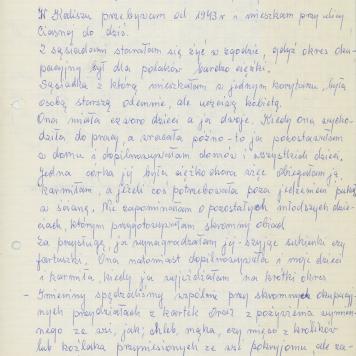 W Kaliszu przebywam od 1943 r. i mieszkam przy ulicy
Ciasnej do dziś.
Z sąsiadami starałam się żyć w zgodzie, gdyż okres oku-
pacyjny był dla polaków bardzo ciężki.
Sąsiadka z którą mieszkałam w jednym korytarzu, była
osobą starszą odemnie, ale uczciwą kobietą.
Ona miała czworo dzieci a ja dwoje. Kiedy ona wycho-
dziła do pracy, a wracała późno - to ja pozostawałam
w domu i dopilnowywałam domów i wszystkich dzieci.
Jedna córka jej była ciężko chora więc obiegałam ją,
karmiłam, a jeżeli coś potrzebowała poza jedzeniem pukała
w ścianę. Nie zapominałam o pozostałych młodszych dzie-
ciach, którym przygotowywałam skromny obiad.
Za przysługę, ja wynagradzałam jej szyjąc sukienki czy
fartuszki. Ona natomiast dopilnowywała i moje dzieci
i karmiła, kiedy ja wyjeżdżałam na krótki okres.
- Imieniny spędzaliśmy wspólnie przy skromnych okupacyj-
nych przydziałach z kartek oraz z pożywienia wymien-
nego ze wsi, jak; chleb, mąka, czy mięso z królików
lub koźlaka przyniesionych ze wsi pokryjomu ale za-